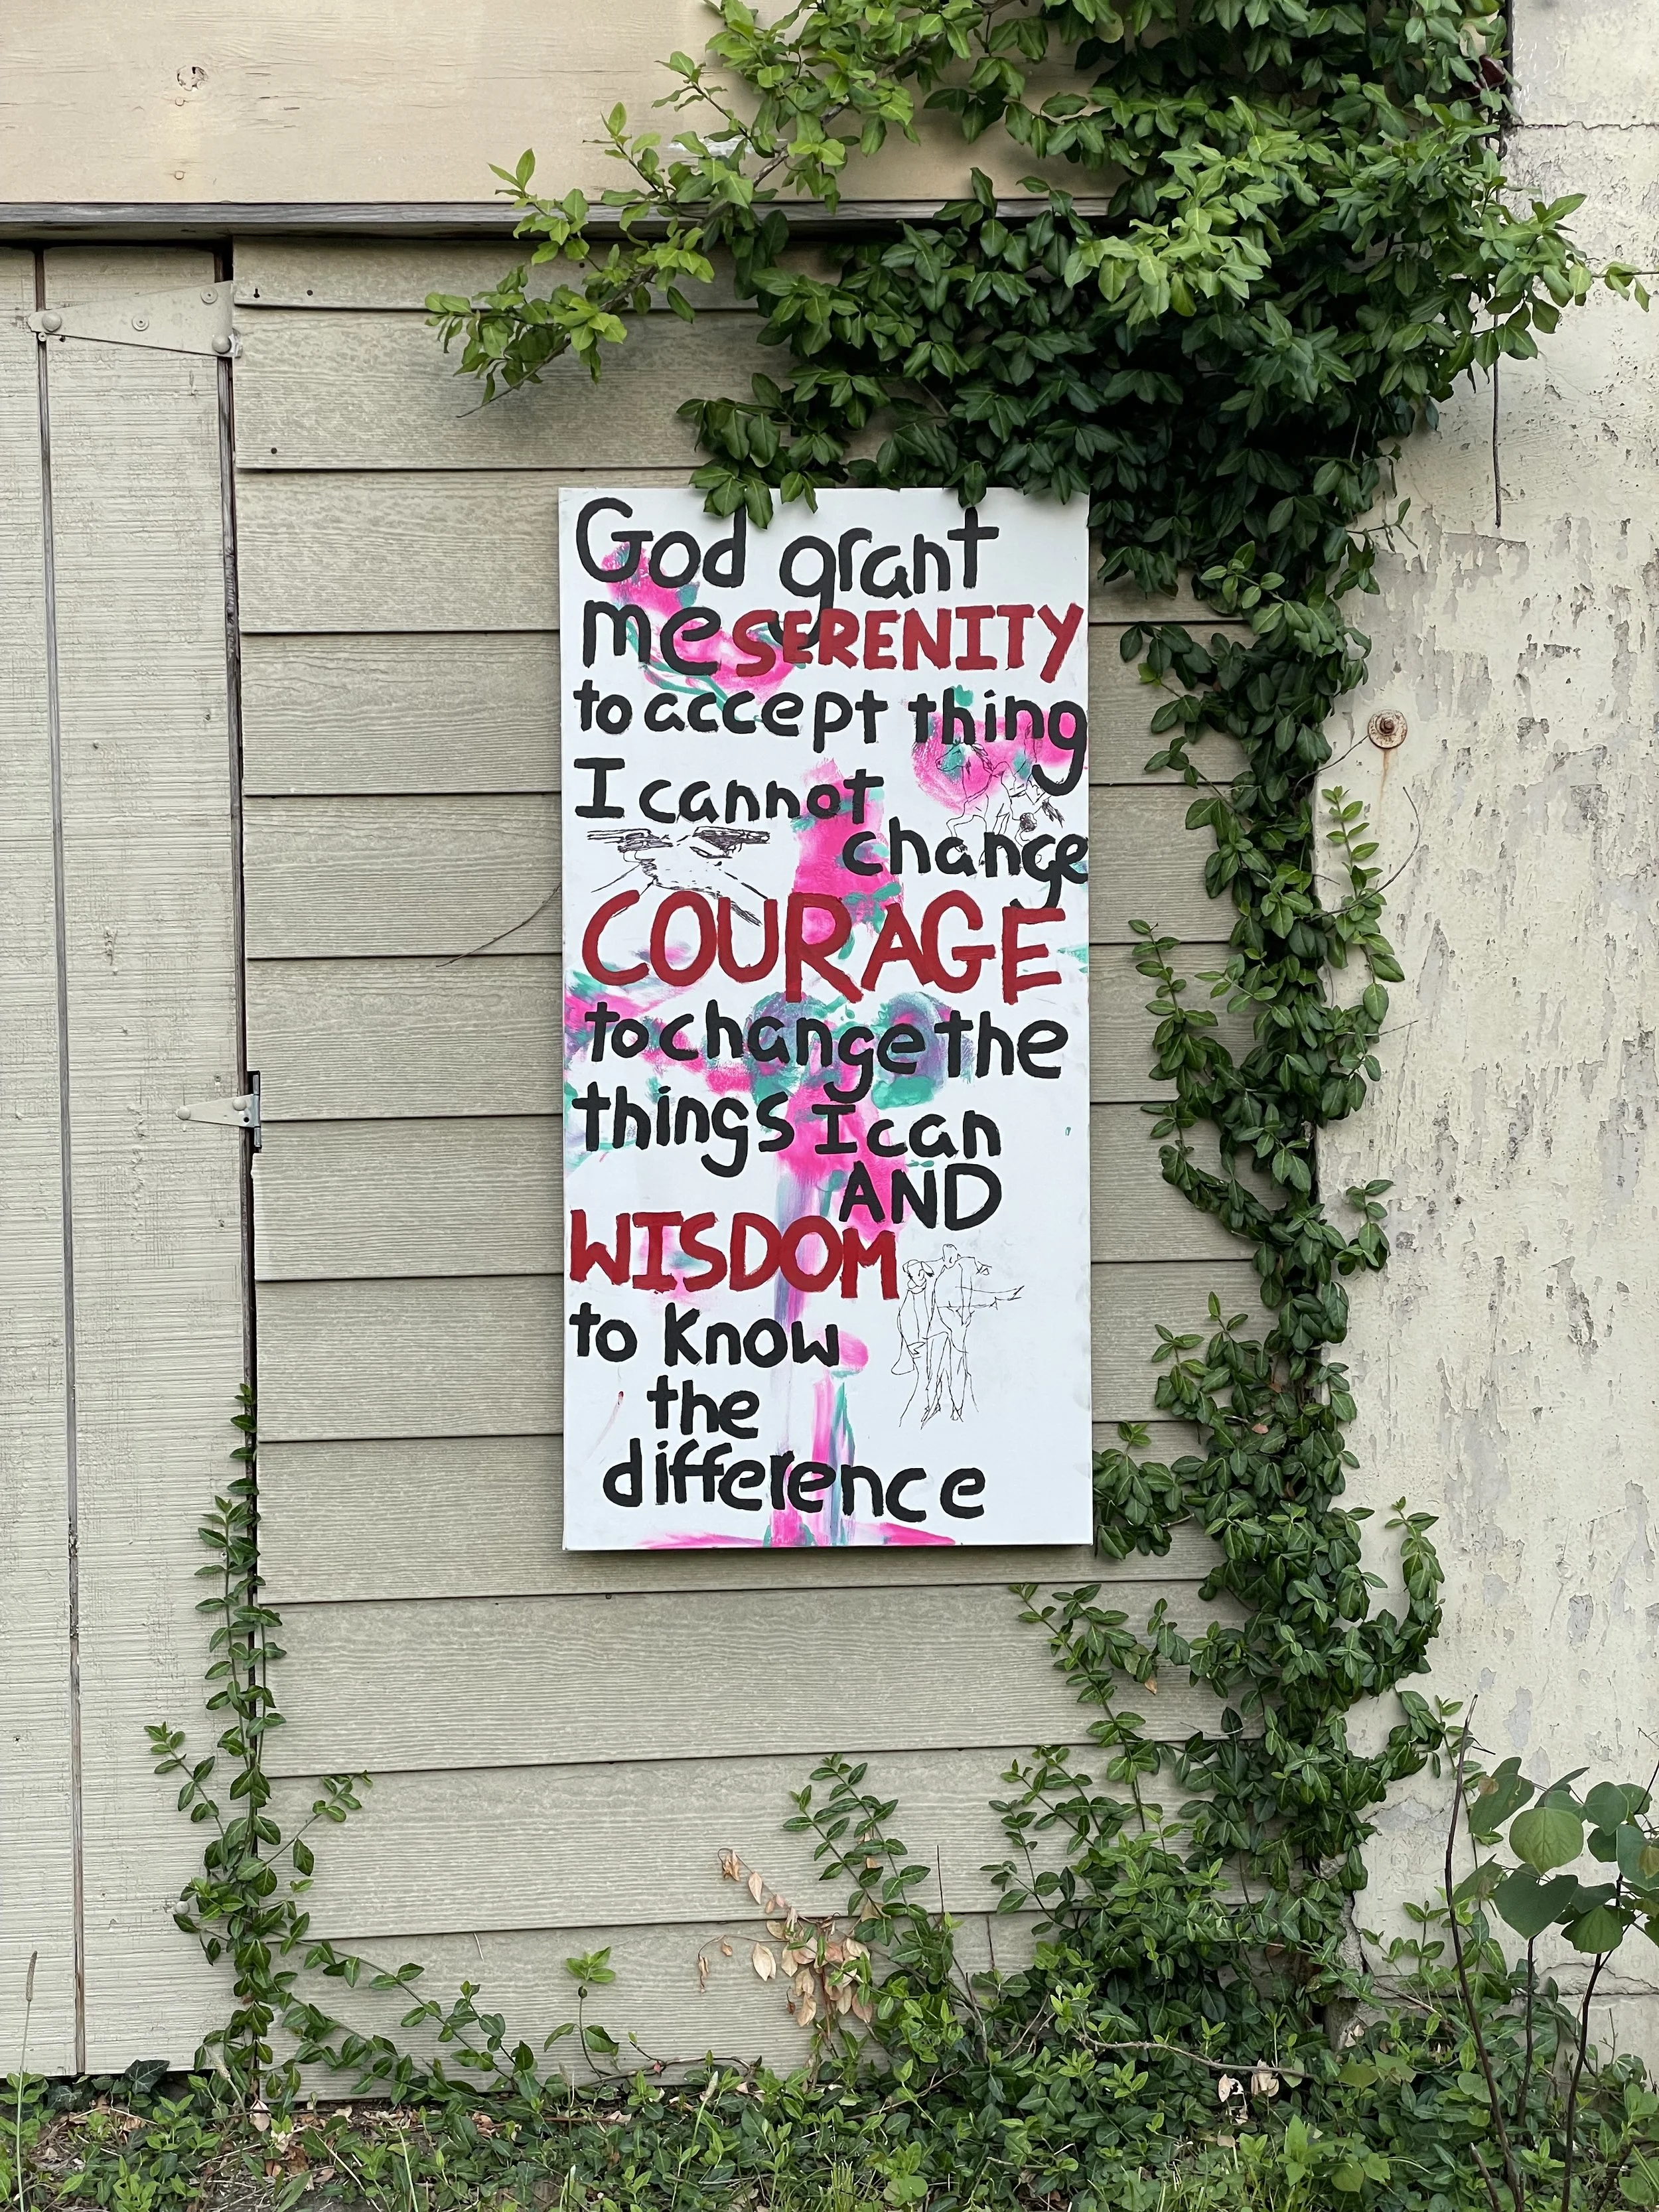 God grant
me SERENITY
to accept thing
I cannot
change
COURAGE
to change the
things I can
AND
WISDOM
to Know
the
difference